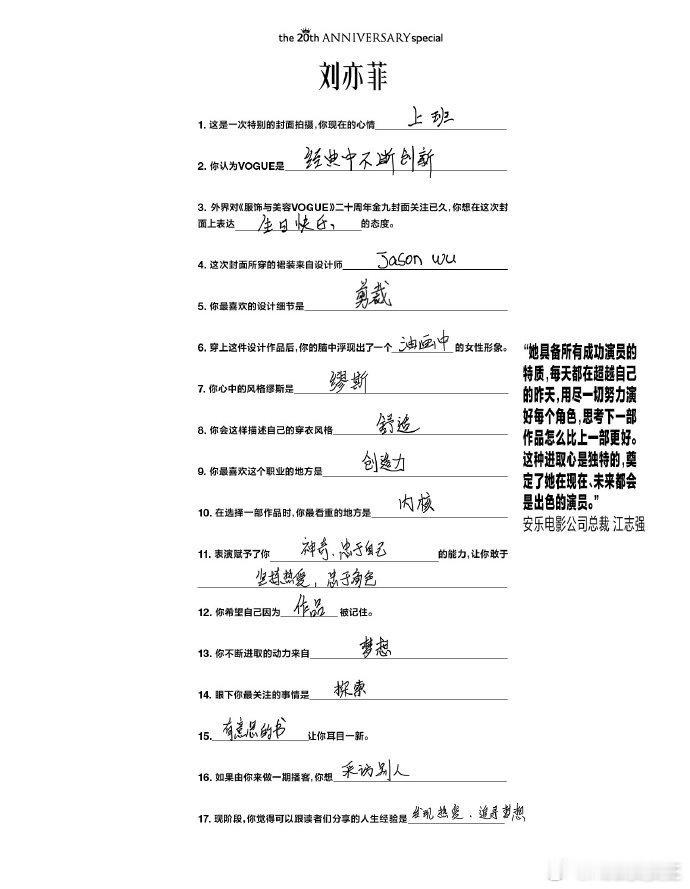 the 20th ANNIVERSARY special
刘亦菲
1. 这是一次特别的封面拍摄,你现在的心情 上班
2. 你认为VOGUE是 经典中不断创新
3. 外界对《服饰与美容VOGUE》二十周年金九封面关注已久,你想在这次封
面上表达 生日快乐、 的态度。
4. 这次封面所穿的裙装来自设计师 Jason wu
5. 你最喜欢的设计细节是 剪裁
6. 穿上这件设计作品后,你的脑中浮现出了一个 油画中 的女性形象。
7. 你心中的风格缪斯是 缪斯
8. 你会这样描述自己的穿衣风格 舒适
9. 你最喜欢这个职业的地方是 创造力
10. 在选择一部作品时,你最看重的地方是 内核
11. 表演赋予了你 神奇、忠于自己 的能力,让你敢于
坚持热爱,忠于角色
12. 你希望自己因为 作品 被记住。
13. 你不断进取的动力来自 梦想
14. 眼下你最关注的事情是 探索
15. 有意思的书 让你耳目一新。
16. 如果由你来做一期播客,你想 采访别人
17. 现阶段,你觉得可以跟读者们分享的人生经验是 发现热爱、追寻梦想
“她具备所有成功演员的
特质,每天都在超越自己
的昨天,用尽一切努力演
好每个角色,思考下一部
作品怎么比上一部更好。
这种进取心是独特的,奠
定了她在现在、未来都会
是出色的演员。”
安乐电影公司总裁 江志强